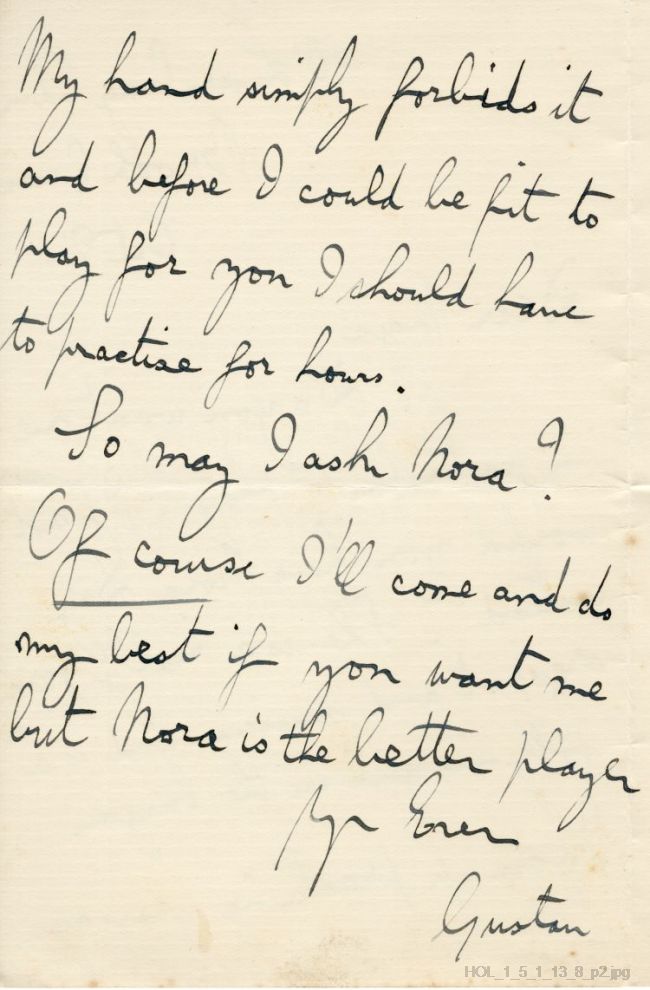 My hand simply forbids it
and before I could be fit to
play for you I should have
to practise for hours.
So may I ask Nora?
Of course I'll come and do
my best if you want me
but Nora is the better player
Yr Ever
Gustav
HOL_1_5_1_13_8_p2.jpg